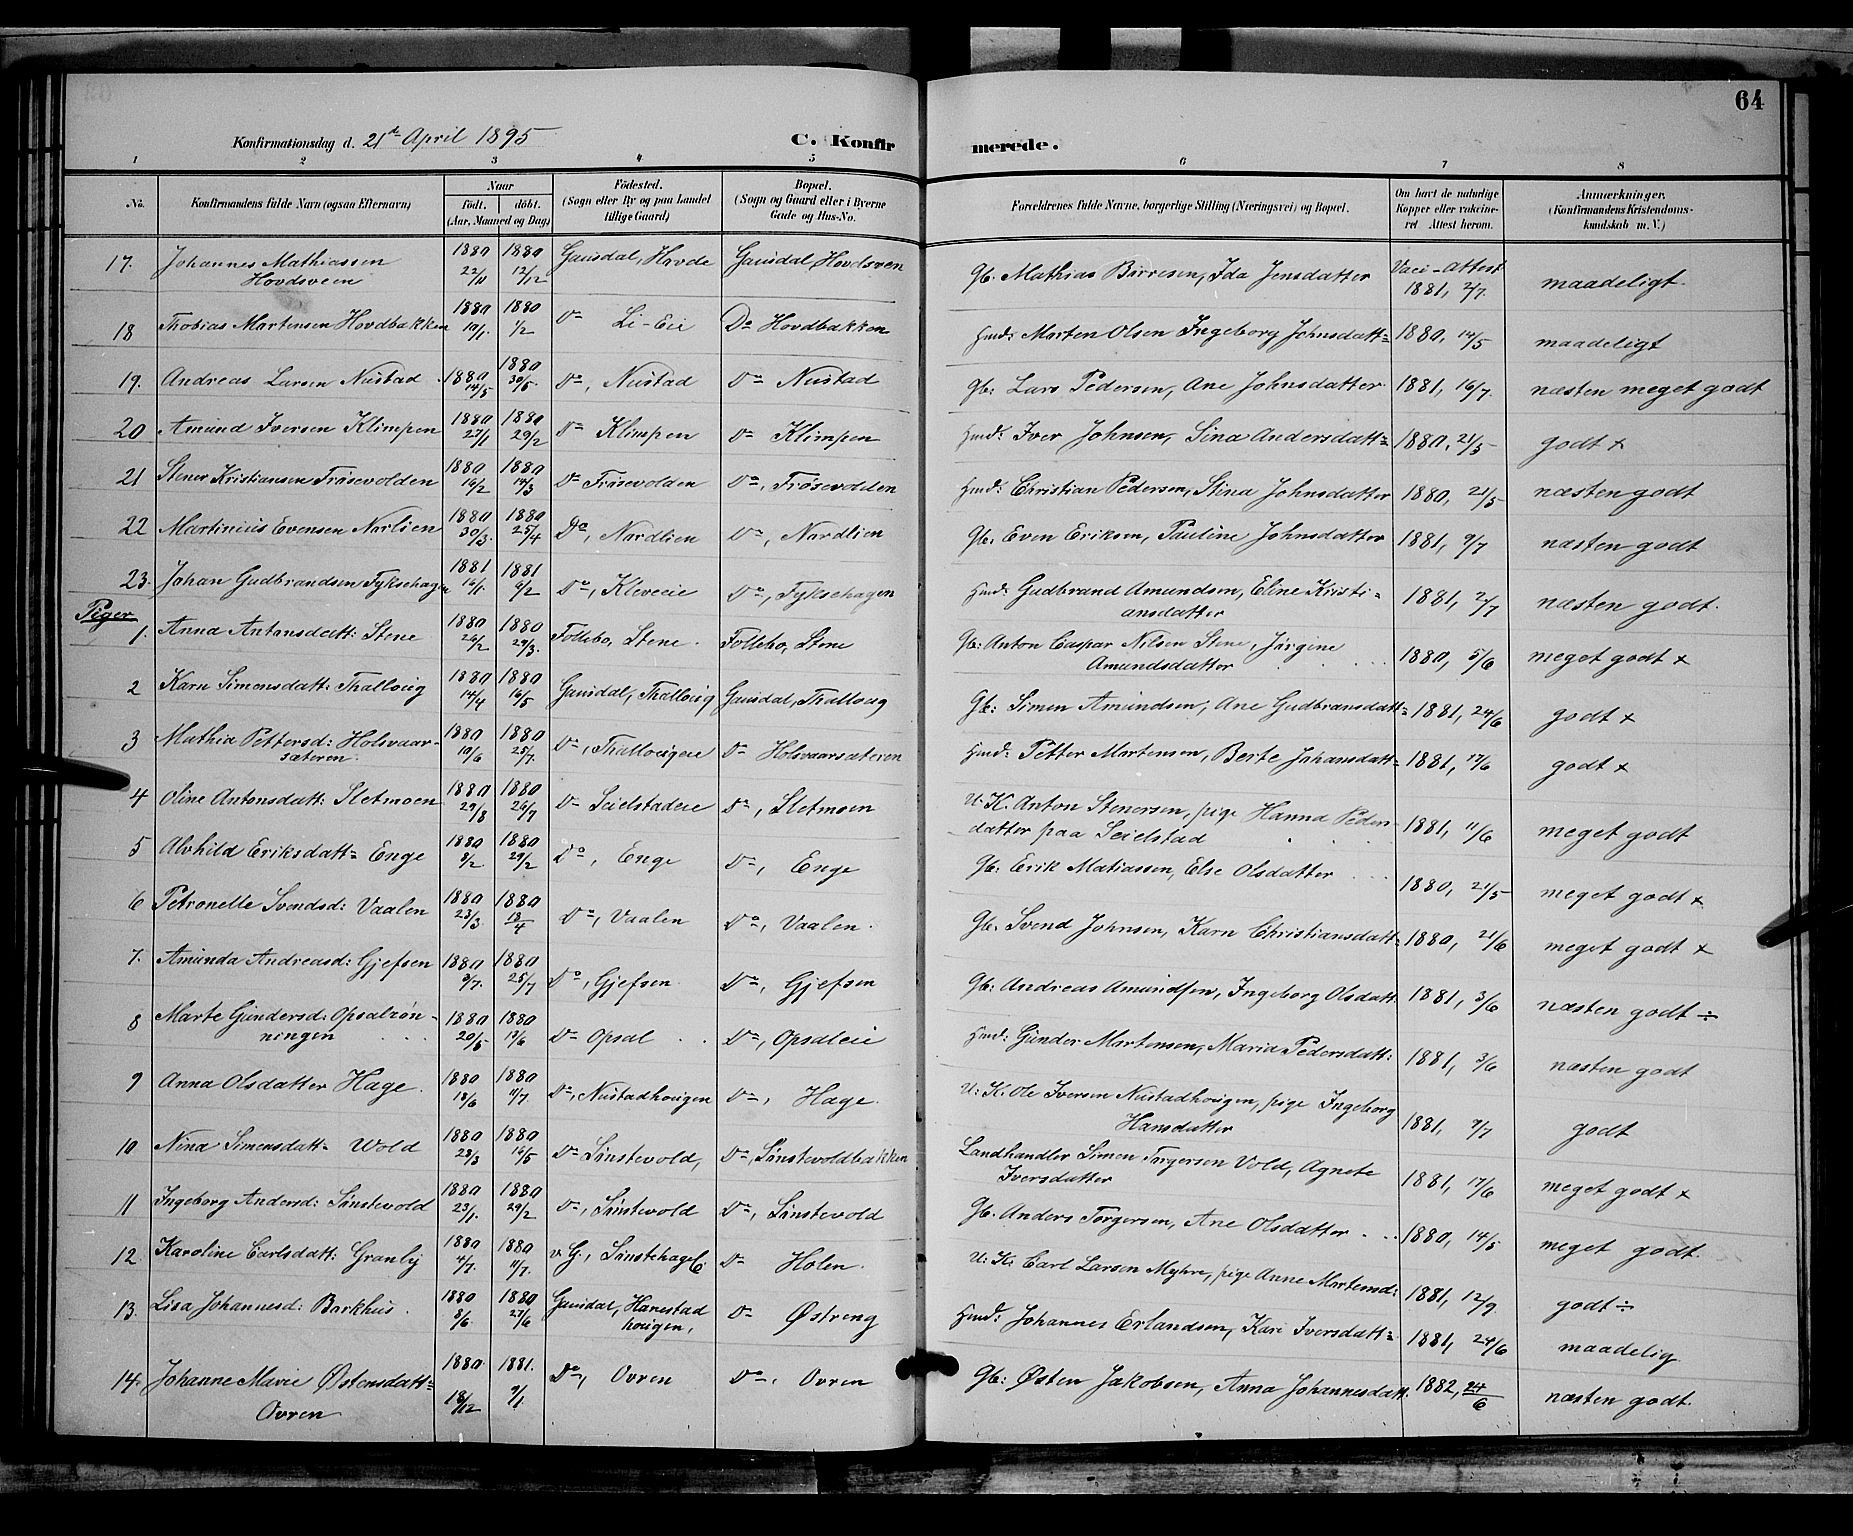 64
Konfirmationsdag d. 21de April 1895 C. Konfirmerede.
1 2 3 4 5 6 7 8
No. Konfirmandens fulde Navn (ogsaa Efternavn) Naar født. døbt. (Aar, Maaned og Dag) Födested. (Sogn eller By og paa Landet tillige Gaard) Bopæl. (Sogn og Gaard eller i Byerne Gade og Hus-No. Forældrenes fulde Navne, borgerlige Stilling (Næringsvei) og Bopæl. Om havt de naturlige Kopper eller vakcineret Attest herom. Anmærkninger. (Konfirmandens Kristendomskundskab m. V.)
17. Johannes Mathiassen Hovdsveen 1880 22/11 1880 12/12 Gausdal, Hovde Gausdal, Hovdsveen Gb. Mathias Börresen, Ida Jensdatter Vacc-Attest 1881, 2/7. maadeligt.
18 Thobias Martensen Hovdbakken 1880 10/1. 1880 1/2 Do Li-Eie Do Hovdbakken Hmd: Marten Olsen Ingeborg Johnsdatt= 1880, 14/5 maadeligt
19. Andreas Larsen Nustad 1880 14/5 1880 30/5. Do, Nustad Do Nustad Gb: Lars Pedersen, Ane Johnsdatter 1881, 16/7. næsten meget godt
20 Amund Iversen Klimpen 1880 27/1 1880 29/2 Do Klimpen Do Klimpen Hmd: Iver Johnsen, Sina Andersdatt= 1880, 21/5 godt x
21 Stener Kristiansen Frösevolden 1880 16/2 1880 14/3 Do Frösevolden Do, Frösevolden Hmd: Christian Pedersen, Stina Johnsdatter 1880, 21/5 næsten godt
22 Martinius Evensen Narlien 1880 30/3. 1880 25/4 Do, Nardlien Do, Nardlien Gb. Even Eriksen, Pauline Johnsdatter 1881, 9/7 næsten godt
23. Johan Gudbrandsen Fyksehagen 1881 16/1. 1881 6/2 Do, Kleveeie Do, Fyksehagen Hmd: Gudbrand Amundsen, Eline Kristiansdatter 1881, 2/7 næsten godt.
Piger
1. Anna Antonsdatt: Stene 1880 26/2 1880 29/3. Follebo, Stene. Follebo, Stene Gb: Anton Caspar Nilsen Stene, Jörgine Amundsdatter 1880, 5/6 meget godt x
2 Karn Simensdatt: Thalloug 1880 14/4 1880 16/5 Gausdal, Thalloug Gausdal, Thalloug Gb: Simen Amundsen, Ane Gudbransdatt= 1881, 24/6 godt x
3 Mathia Pettersd: Holsvaarsæteren. 1880 19/6 1880 25/7. Do, Thallougeie Do Holsvaarsæteren Hmd: Petter Martensen, Berte Johansdatt= 1881, 17/6 godt x
4 Oline Antonsdatt: Sletmoen 1880 29/8 1880 26/7 Do Seielstadeie Do, Sletmoen U: K. Anton Stenersen, pige Hanna Pedersdatter paa Seielstad 1881, 11/6 meget godt
5 Alvhild Eriksdatt= Enge 1880 8/2 1880 29/2 Do, Enge Do, Enge Gb: Erik Matiassen, Else Olsdatter 1880, 21/5 meget godt x
6 Petronelle Svendsd: Vaalen 1880 23/3. 1880 18/4 Do, Vaalen Do, Vaalen. Gb. Svend Johnsen, Karn Christiansdatt: 1880, 21/6 meget godt x
7. Amunda Andreasd: Gjefsen 1880 3/7. 1880 25/7 Do, Gjefsen. Do, Gjefsen Gb: Andreas Amundsen, Ingeborg Olsdatt. 1881, 3/6 næsten godt ÷
8 Marte Gundersd: Opsalrönningen 1880 20/5 1880 13/6 Do Opsal Do, Opsaleie Hmd: Gunder Martensen, Maria Pedersdatt: 1881, 3/6 næsten godt
9 Anna Olsdatter Hage. 1880 18/6 1880 11/7. Do, Nustadhougen Do, Hage. U: K. Ole Iversen Nustadhougen, pige Ingeborg Hansdatter 1881, 9/7 godt
10 Nina Simensdatt= Wold 1880 28/3 1880 16/5 Do Sönstevold, Do, Sönstevoldbakken Landhandler Simen Torgersen Vold, Agnete Iversdatter 1881, 17/6 meget godt x
11 Ingeborg Andersd: Sönstevold 1880 23/1. 1880 29/2 Do, Sönstevold Do, Sönstevold Gb. Anders Torgersen, Ane Olsdatter 1880, 14/5 meget godt.
12. Karoline Carlsdatt: Granly 1880 4/7. 1880 11/7. v. G., Sönstehagel. Do Holen. U: K: Carl Larsen Myhre, pige Anne Martensd: 1881, 12/9. godt ÷
13. Lisa Johannesd: Barkhus. 1880 8/6. 1880 27/6 Gausdal, Hanestadhougen, Do Østreng Hmd: Johannes Erlandsen, Kari Iversdatt= 1881, 24/6 maadelig
14. Johanne Marie Østensdatt= Ovren 1880. 18/12 1881. 9/1. Do, Ovren Do, Ovren Gb: Østen Jakobsen, Anna Johannesdatt. 1882, 24/6 næsten godt.